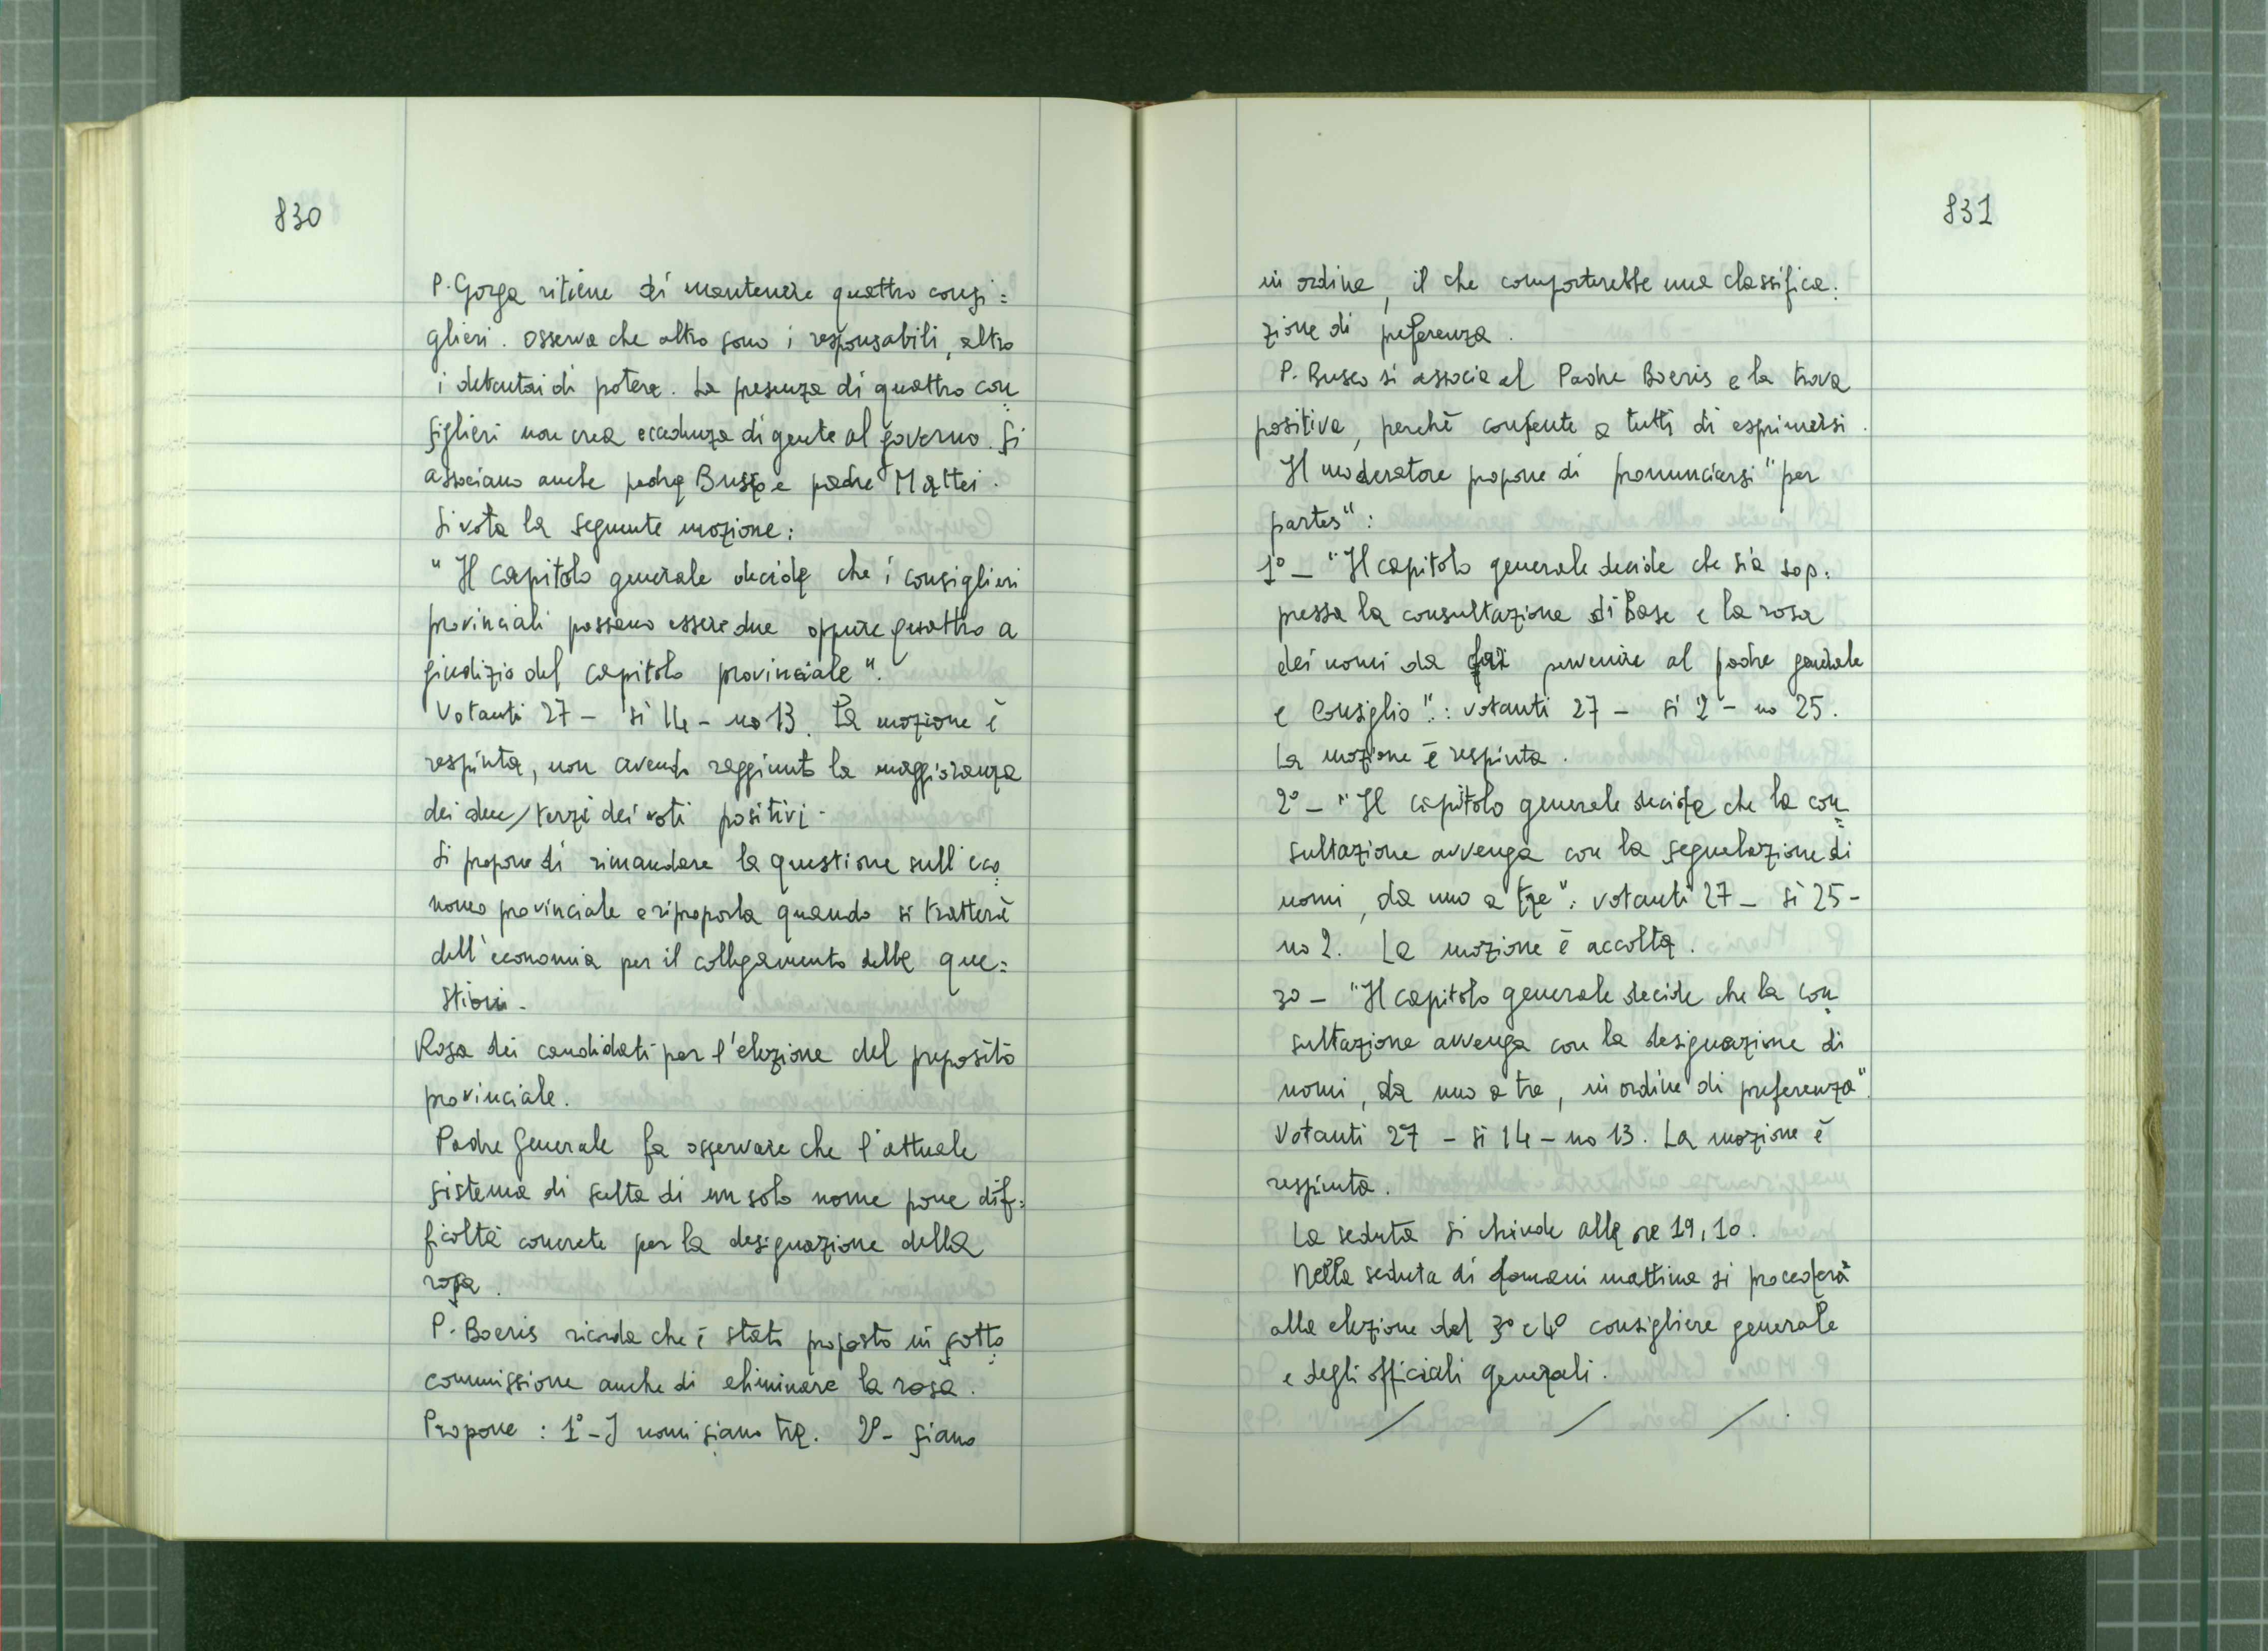 830
P. Gorga ritiene di mantenere quattro consi=
glieri. Osserva che altro sono i responsabili, altro
i detentori di potere. La presenza di quattro con
siglieri non crea eccedenza di gente al governo. Si
associano anche padre Busco e padre Mattei.
Si vota la seguente mozione:
"Il capitolo generale decide che i consiglieri
provinciali possano essere due oppure quattro a
giudizio del capitolo provinciale".
Votanti 27 - sì 14 - no 13. La mozione è
respinta, non avendo raggiunto la maggioranza
dei due/terzi dei voti positivi -
Si propone di rimandare la questione sull'eco
nomo provinciale e riproporla quando si tratterà
dell'economia per il collegamento delle que=
stioni -
Rosa dei candidati per l'elezione del preposito
provinciale.
Padre Generale fa osservare che l'attuale
sistema di scelta di un solo nome pone dif=
ficoltà concrete per la designazione della
rosa.
P. Boeris ricorda che è stato proposto in sotto
commissione anche di eliminare la rosa.
Propone : 1° - I nomi siano tre. 2° - siano
831
in ordine, il che comporterebbe una classifica:
zione di preferenza.
P. Busco si associa al Padre Boeris e la trova
positiva, perchè consente a tutti di esprimersi.
Il moderatore propone di pronunciarsi "per
partes":
1° - "Il capitolo generale decide che sia sop:
pressa la consultazione di Base e la rosa
dei nomi da far pervenire al padre generale
e Consiglio".: votanti 27 - sì 2 - no 25.
La mozione è respinta.
2° - "Il capitolo generale decide che la con
sultazione avvenga con la segnalazione di
nomi, da uno a tre": votanti 27 - sì 25 -
no 2. La mozione è accolta.
3° - "Il capitolo generale decide che la con
sultazione avvenga con la designazione di
nomi, da uno a tre, in ordine di preferenza".
Votanti 27 - sì 14 - no 13. La mozione è
respinta.
La seduta si chiude alle ore 19,10.
Nella seduta di domani mattina si procederà
alla elezione del 3° e 4° consigliere generale
e degli officiali generali.